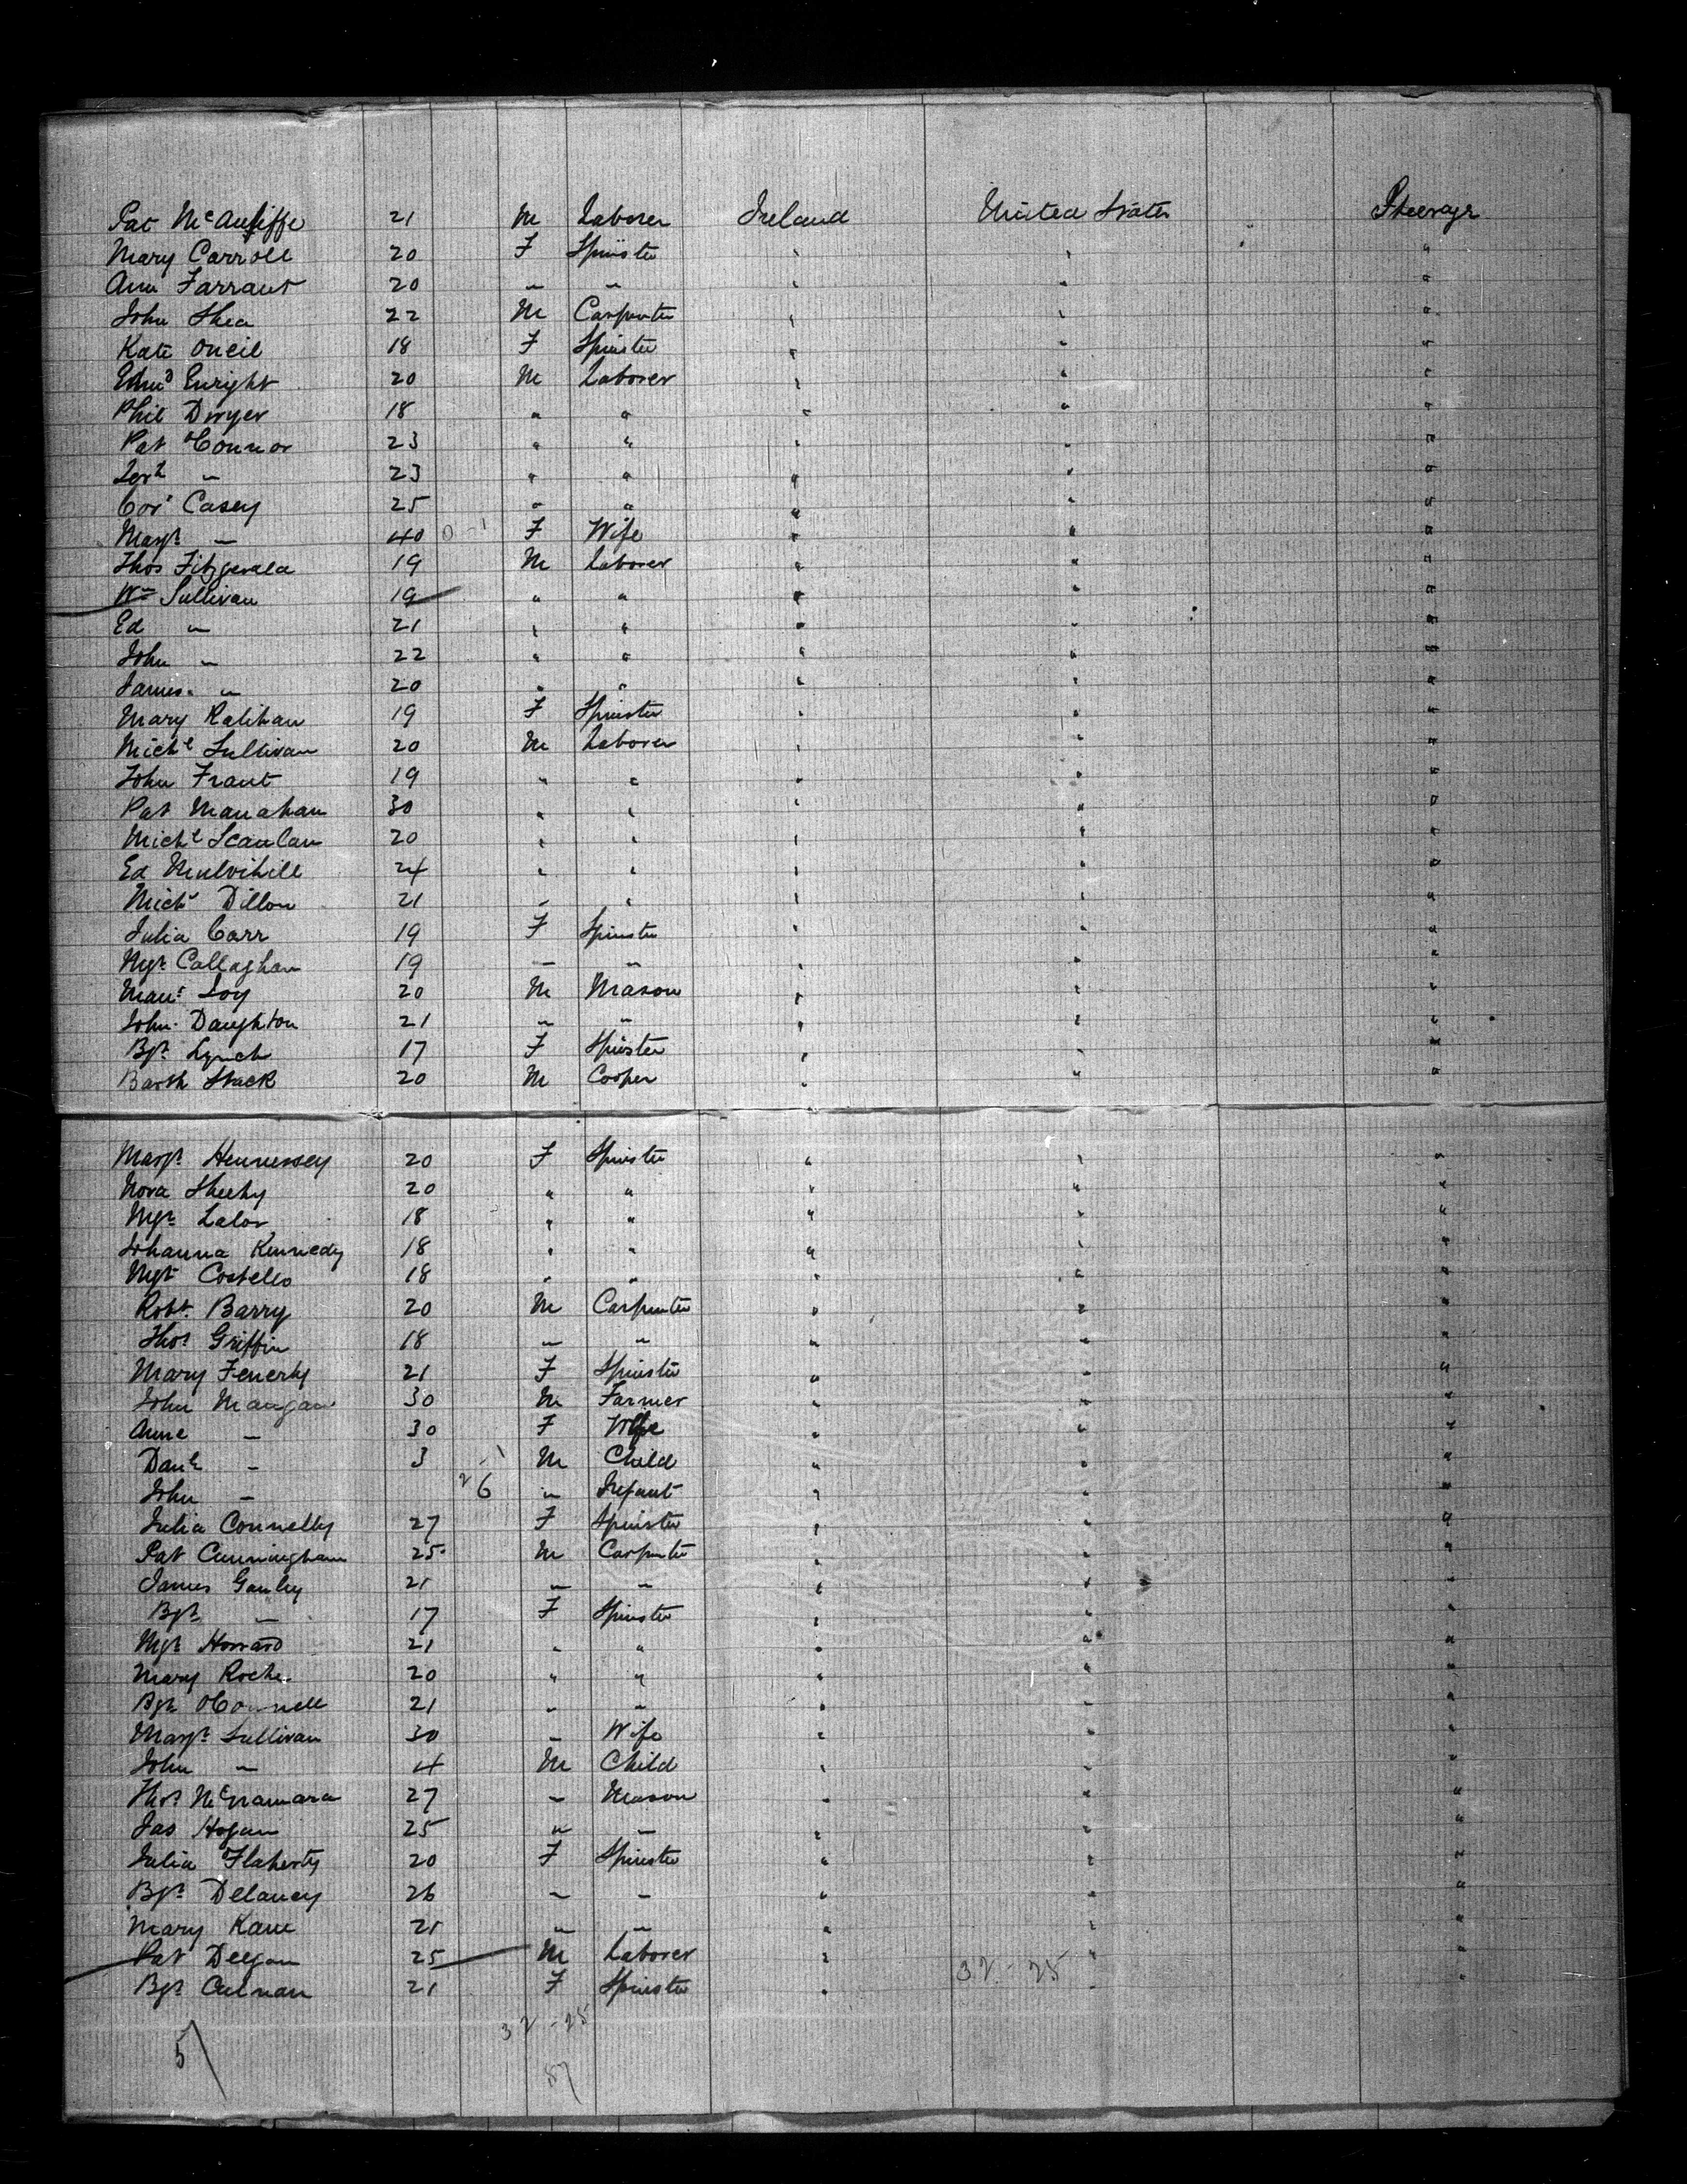 Pat McAuliffe 21 M Laborer Ireland United States Steerage
Mary Carroll 20 F Spinster " " "
Ann Farrant 20 " " " " "
John Shea 22 M Carpenter " " "
Kate Oneil 18 F Spinster " " "
Edmd Enright 20 M Laborer " " "
Phil Dwyer 18 " " " " "
Pat OConnor 23 " " " " "
Jerh " 23 " " " " "
Cors Casey 25 " " " " "
Margt " 40 F Wife " " "
Thos Fitzgerald 19 M Laborer " " "
Wm Sullivan 19 " " " " "
Ed " 21 " " " " "
John " 22 " " " " "
James " 20 " " " " "
Mary Ralihan 19 F Spinster " " "
Michl Sullivan 20 M Laborer " " "
John Frant 19 " " " " "
Pat Manahan 30 " " " " "
Michl Scanlan 20 " " " " "
Ed Mulvihill 24 " " " " "
Michl Dillon 21 " " " " "
Julia Carr 19 F Spinster " " "
Mgt Callaghan 19 " " " " "
Maur 20 M Mason " " "
John Daughton 21 " " " " "
Bgt Lynch 17 F Spinster " " "
Barth Stack 20 M Cooper " " "
Margt Hennessey 20 F Spinster " " "
Nora Sheehy 20 " " " " "
Mgt Lalor 18 " " " " "
Johanna Kennedy 18 " " " " "
Mgt Costello 18 " " " " "
Robt Barry 20 M Carpenter " " "
Thos Griffin 18 " " " " "
Mary Fenerty 21 F Spinster " " "
John Mangan 30 M Farmer " " "
Anne " 30 F Wife " " "
Danl " 3 M Child " " "
John " 6 " Infant " " "
Julia Connelly 27 F Spinster " " "
Pat Cunningham 25 M Carpnter " " "
James Ganley 21 " " " " "
Bgt " 17 F Spinster " " "
Mgt Howard 21 " " " " "
Mary Roche 20 " " " " "
Bgt OConnell 21 " " " " "
Margt Sullivan 30 " Wife " " "
John " 4 M Child " " "
Thos McNamara 27 " Mason " " "
Jas Hogan 25 " " " " "
Julia Flaherty 20 F Spinster " " "
Bgt Delaney 26 " " " " "
Mary Kane 21 " " " " "
Pat Deegan 25 M Laborer " " "
Bgt Culnan 21 F Spinster " " "
32 - 25
32 - 25
57
57